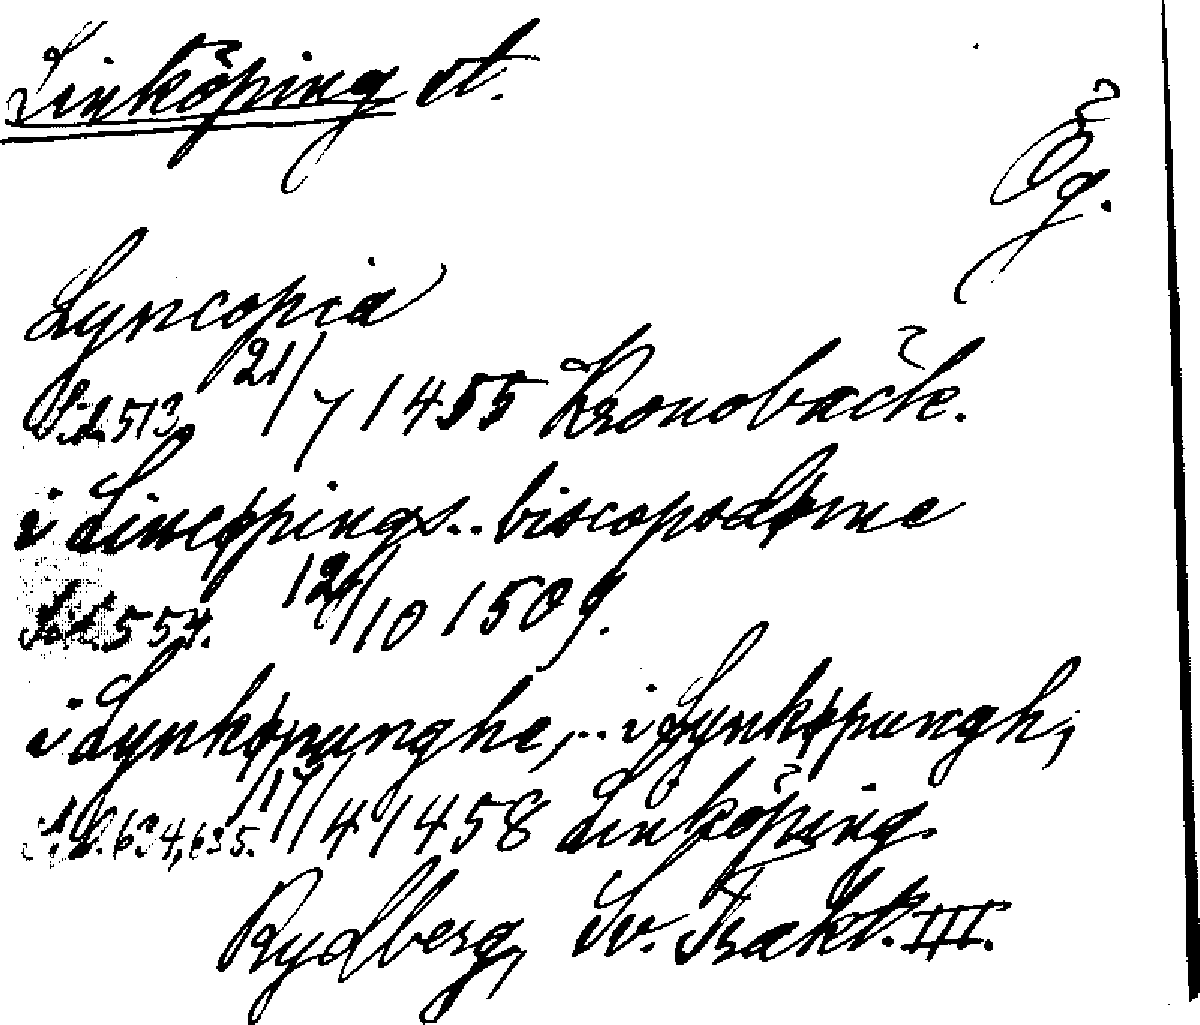 Linköping st.
Ög.
Lyncopia
S.d. 513. 21/7 1455 Kronobäck.
i Lincøpings .. biscopsdøme
S.d. 554. 12/10 1509.
i Lynkøpunghe, .. i Lynkøpungh,
S.d. 634, 635. 17/4 1458 Linköping.
Rydberg, Sv. Trakt. III.